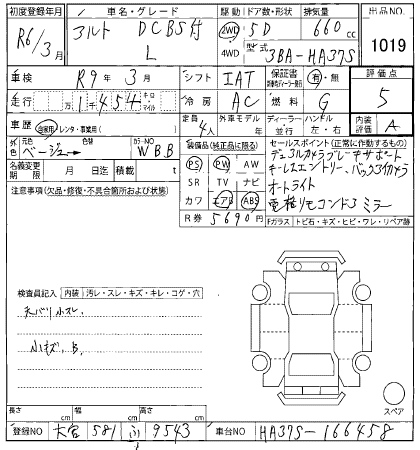 初度登録年月 車名・グレード 駆動 ドア数・形状 排気量 出品NO.
R6/3月 アルト DCBS付 L 2WD 5D 660cc 1019
4WD 型式 3BA-HA37S
車検 R9年3月 シフト IAT 保証書 有・無 評価点
走行 万1千454キロ マイル 冷房 AC 燃料 G 5
車歴 自家用・レンタ・事業用( ) 定員 4人 外車モデル 年 ディーラー 並行 ハンドル 左・右 内装評価 A
外色 元色 ベージュー 色替 カラーNO WBB
装備品(純正品に限る) セールスポイント(正常に作動するもの)
名義変更期限 月 日 積載 t
PS PW AW
SR TV ナビ
カワ エアB ABS
R券 5690円
デュアルカメラブレーキサポート
キーレスエントリー、バックカメラ
オートライト
電格リモコンドアミラー
注意事項(欠品・修復・不具合箇所および状態)
Fガラス トビ石・キズ・ヒビ・ワレ・リペア跡
検査員記入 内装 汚レ・スレ・キズ・キレ・コゲ・穴
天バリ小スレ
小キズ、B
スペア
長さ cm 幅 cm 高さ cm
登録NO 大宮 581 ふ 9543 車台NO HA37S-166458